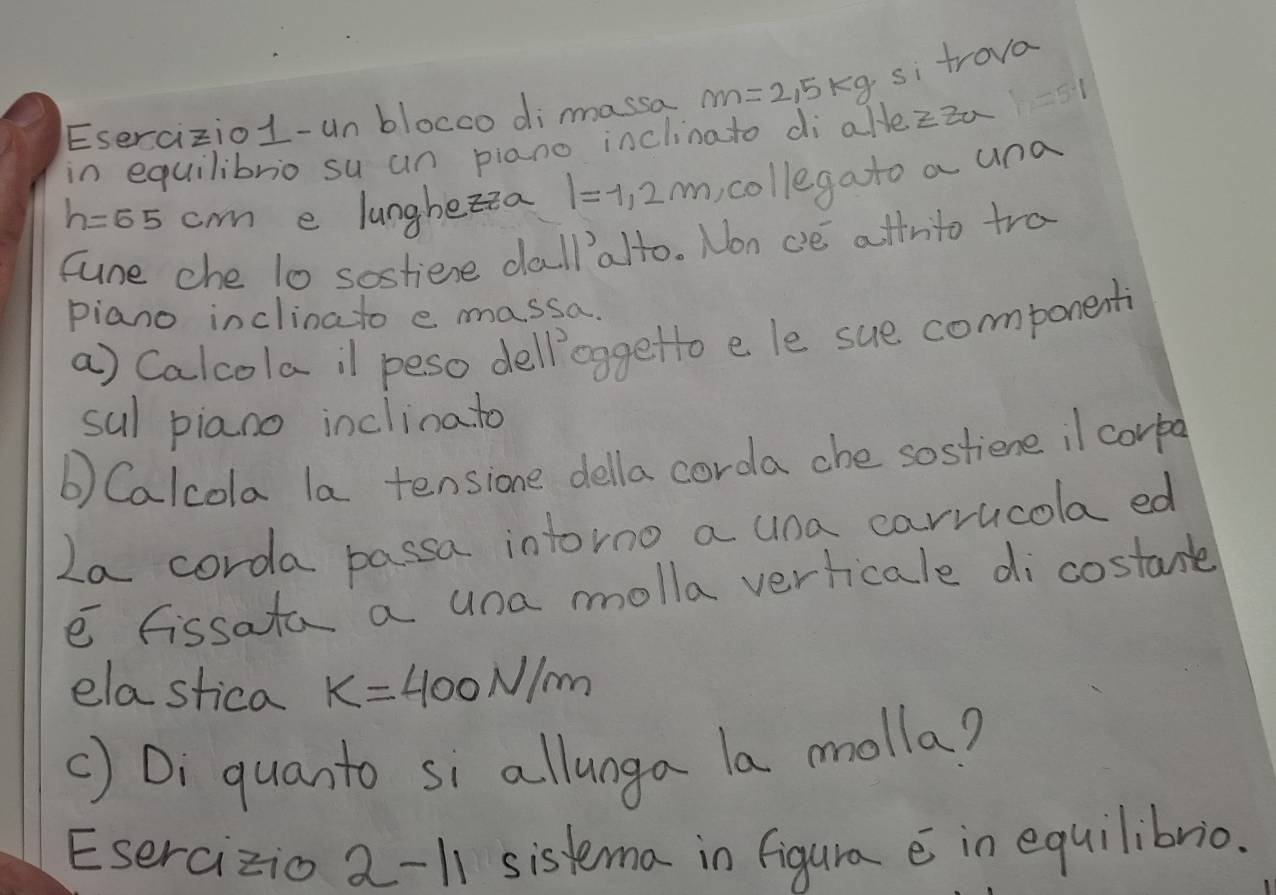 Esercizio 1 - un blocco di massa m=2,5 kg si trova
in equilibrio su un piano inclinato di altezza
h=65 cm e lunghezza l=1,2 m, collegato a una
fune che lo sostiene dall'alto. Non c'é attrito tra
piano inclinato e massa.
a) Calcola il peso dell'oggetto e le sue componenti
sul piano inclinato
b) Calcola la tensione della corda che sostiene il corpo
La corda passa intorno a una carrucola ed
é fissata a una molla verticale di costante
elastica K=400 N/m
c) Di quanto si allunga la molla?
Esercizio 2 - Il sistema in figura é in equilibrio.